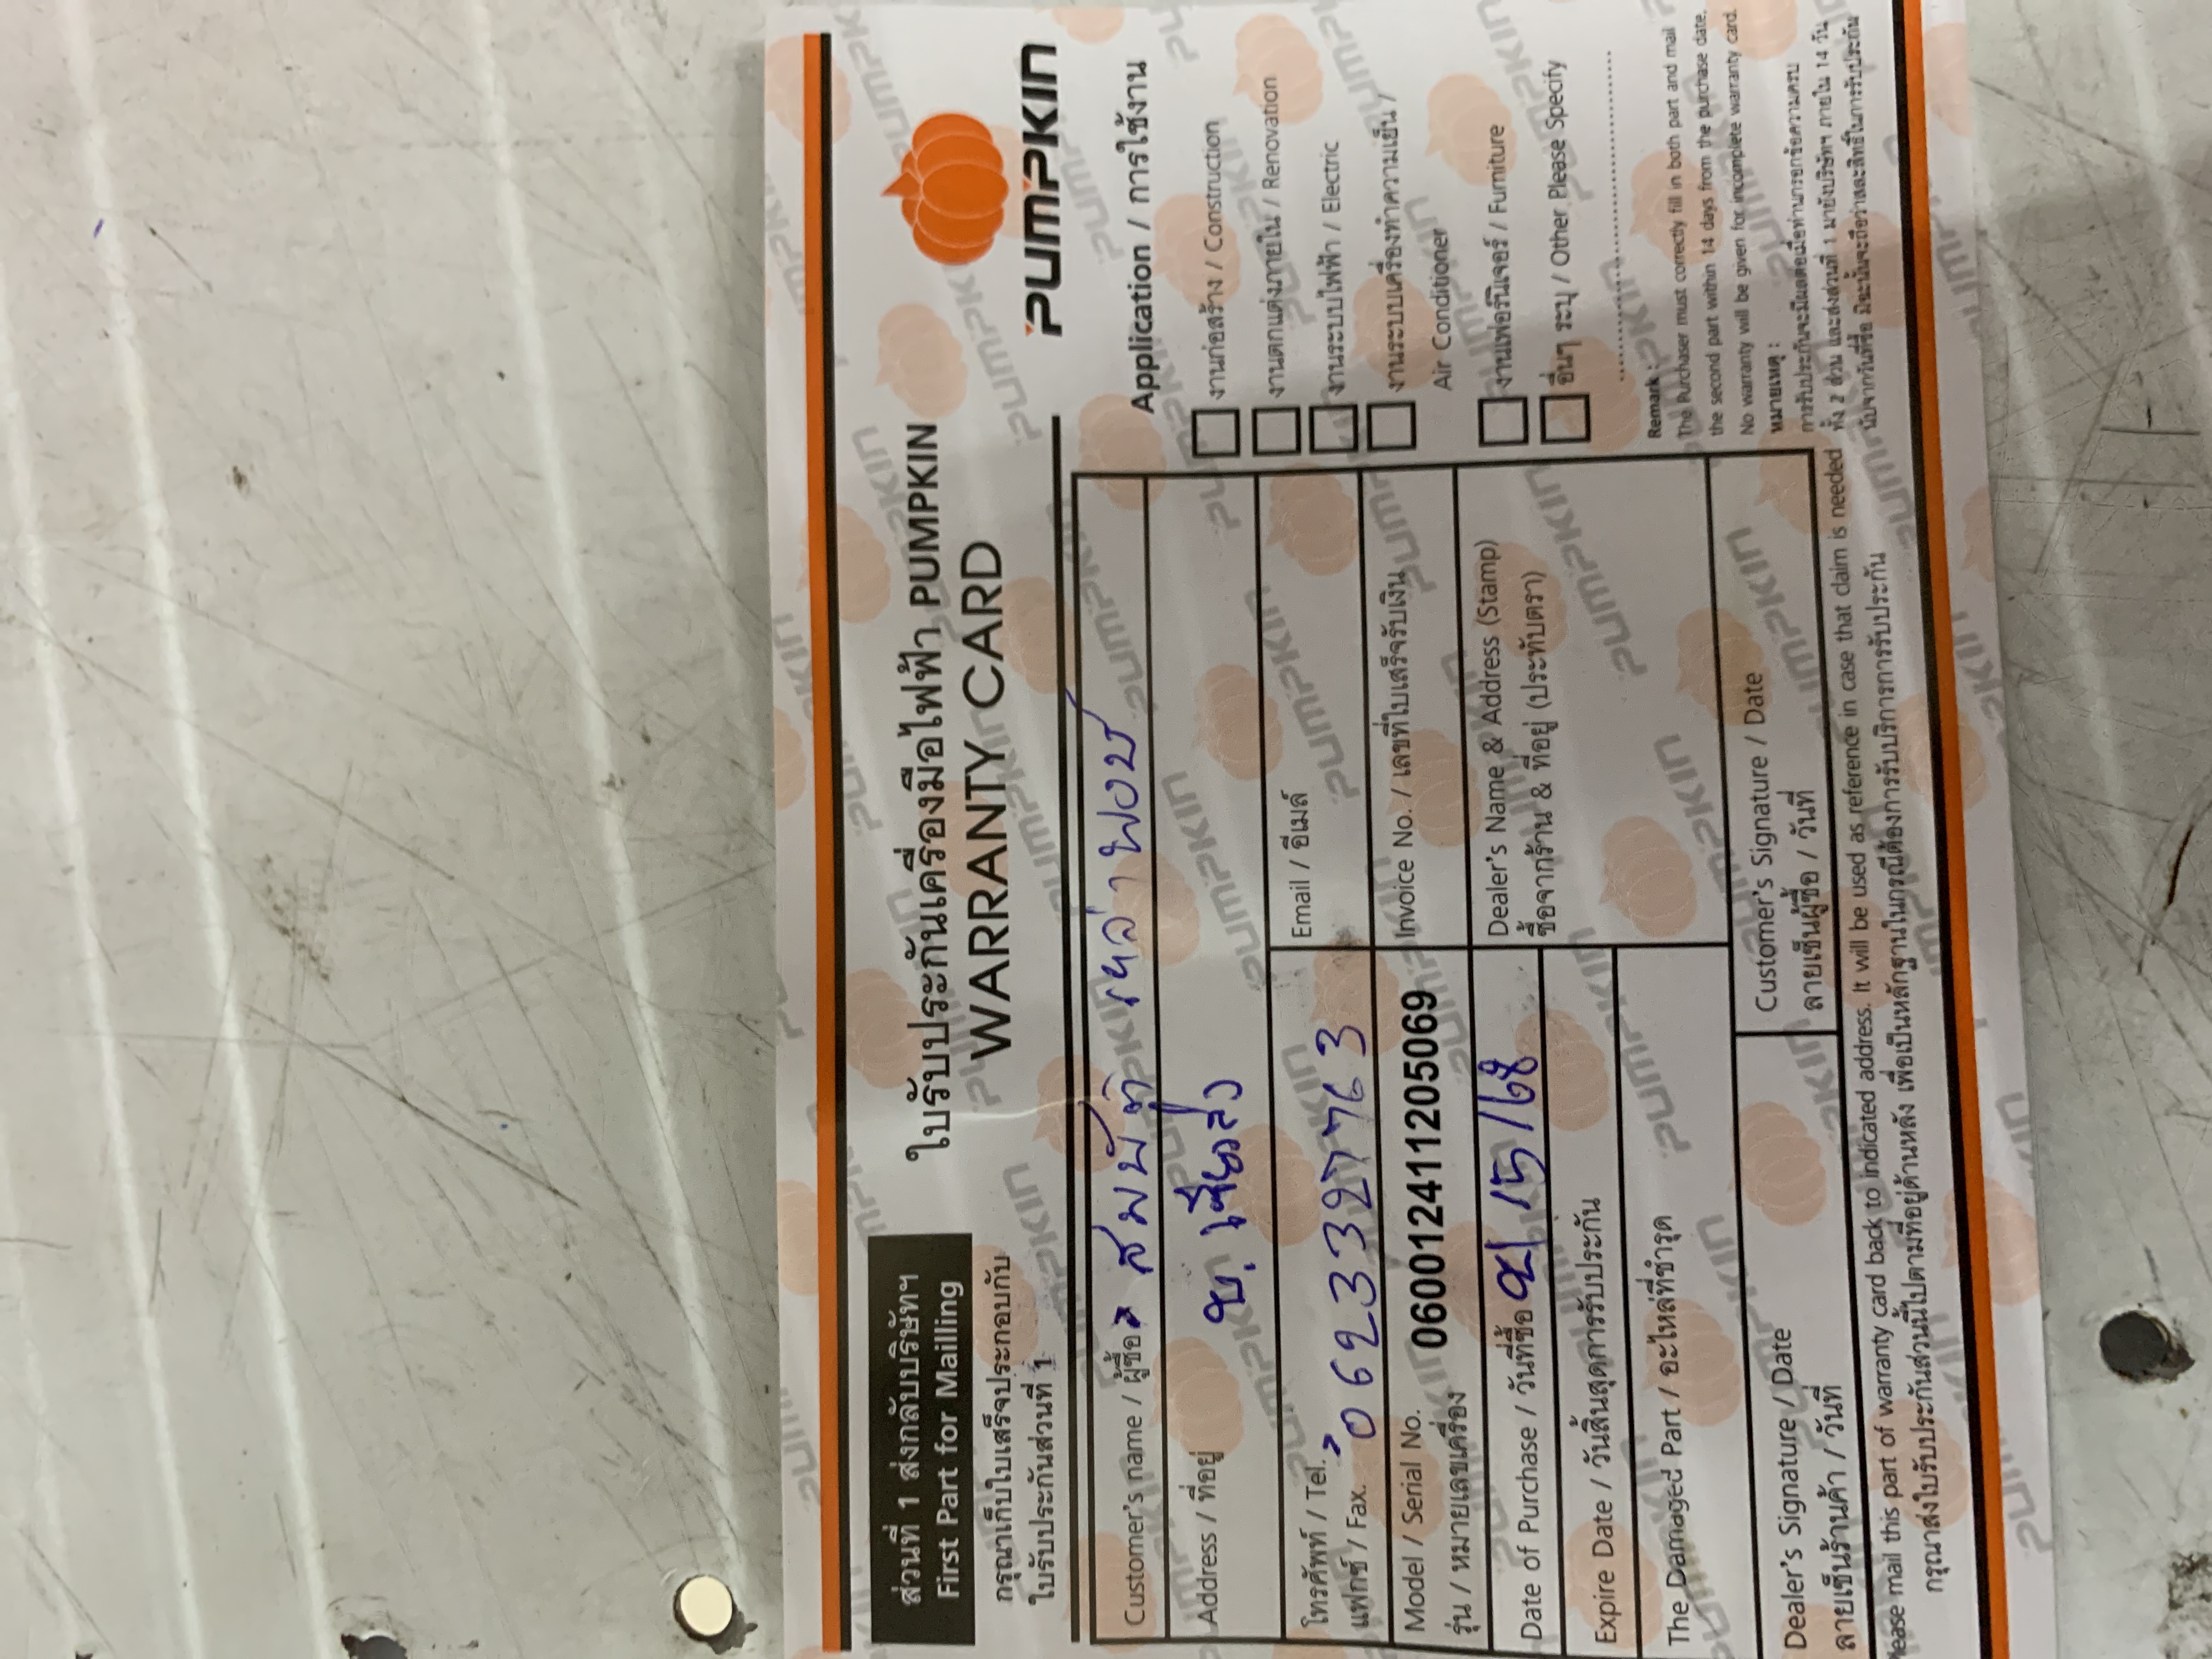 ส่วนที่ 1 ส่งกลับบริษัทฯ
First Part for Mailling
กรุณาเก็บใบเสร็จประกอบกับ
ใบรับประกันส่วนที่ 1
ใบรับประกันเครื่องมือไฟฟ้า PUMPKIN
WARRANTY CARD
PUMPKIN
Customer's name / ผู้ซื้อ สมบัติ เหล่าพงษ์
Address / ที่อยู่
โทรศัพท์ / Tel. 0623327763
แฟกซ์ / Fax.
Email / อีเมล์
Model / Serial No. 0600124112050069
รุ่น / หมายเลขเครื่อง
Invoice No. / เลขที่ใบเสร็จรับเงิน
Date of Purchase / วันที่ซื้อ /5/68
Expire Date / วันสิ้นสุดการรับประกัน
The Damaged Part / อะไหล่ที่ชำรุด
Dealer's Name & Address (Stamp)
ซื้อจากร้าน & ที่อยู่ (ประทับตรา)
Dealer's Signature / Date
ลายเซ็นร้านค้า / วันที่
Customer's Signature / Date
ลายเซ็นผู้ซื้อ / วันที่
Application / การใช้งาน
งานก่อสร้าง / Construction
งานตกแต่งภายใน / Renovation
งานระบบไฟฟ้า / Electric
งานระบบเครื่องทำความเย็น /
Air Conditioner
งานเฟอร์นิเจอร์ / Furniture
อื่นๆ ระบุ / Other Please Specify
Remark :
The Purchaser must correctly fill in both part and mail
the second part within 14 days from the purchase date.
No warranty will be given for incomplete warranty card.
หมายเหตุ :
การรับประกันจะมีผลต่อเมื่อท่านกรอกข้อความครบ
ทั้ง 2 ส่วน และส่งส่วนที่ 1 มายังบริษัทฯ ภายใน 14 วัน
นับจากวันที่ซื้อ มิฉะนั้นจะถือว่าสละสิทธิ์ในการรับประกัน
Please mail this part of warranty card back to indicated address. It will be used as reference in case that claim is needed
กรุณาส่งใบรับประกันส่วนนี้ไปตามที่อยู่ด้านหลัง เพื่อเป็นหลักฐานในกรณีต้องการรับบริการการรับประกัน